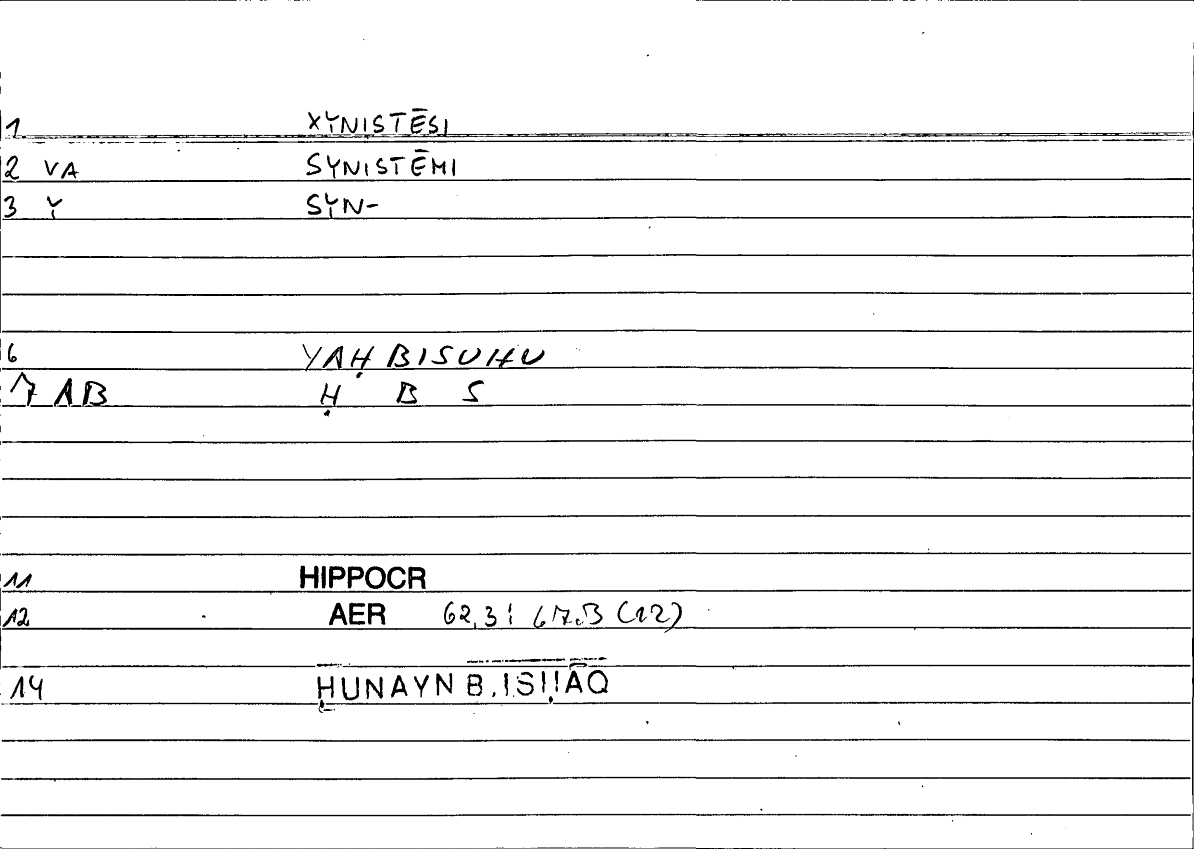 1 XYNISTĒSI
2 VA SYNISTĒMI
3 Y SYN-
6 YAḤBISUHU
7 AB Ḥ B S
11 HIPPOCR
12 AER 62,3; 67.3 (12)
14 ḤUNAYN B. ISḤĀQ